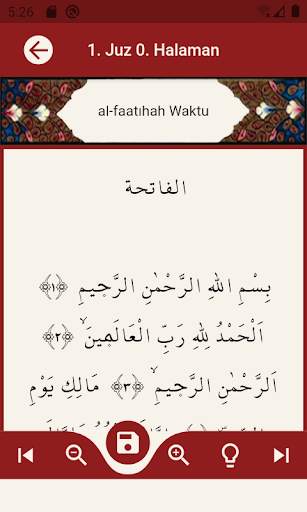 5:26
1. Juz 0. Halaman
al-faatıhah Waktu
الفاتحة
بِسْمِ اللهِ الرَّحْمٰنِ الرَّحٖيمِ ﴿١﴾
اَلْحَمْدُ لِلّٰهِ رَبِّ الْعَالَمٖينَۙ ﴿٢﴾
اَلرَّحْمٰنِ الرَّحٖيمِۙ ﴿٣﴾ مَالِكِ يَوْمِ